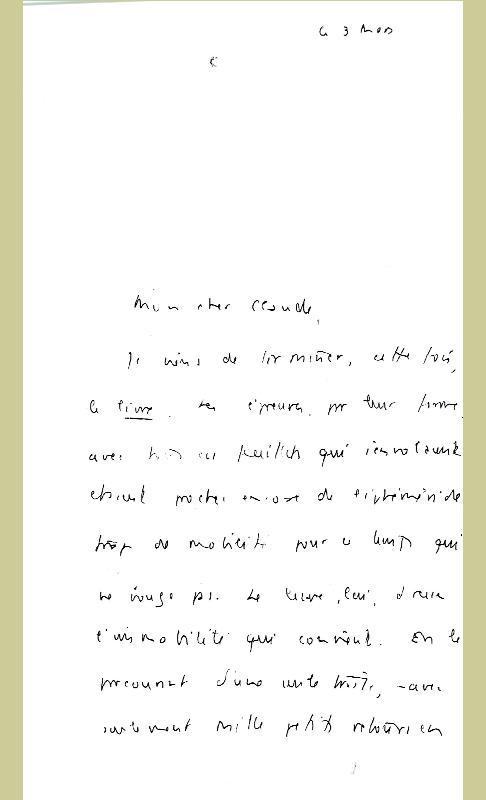 le 3 Mars
Mon cher Claude,
Je viens de terminer, cette fois,
le livre. Les épreuves, par leur forme,
avec ces feuilles qui s'envolaient
étaient proches encore de
trop de mobilité pour ce temps qui
ne bouge pas. Le livre, lui, a
l'immobilité qui convient. En le
parcourant d'une seule traite, – avec
seulement mille petits retours en